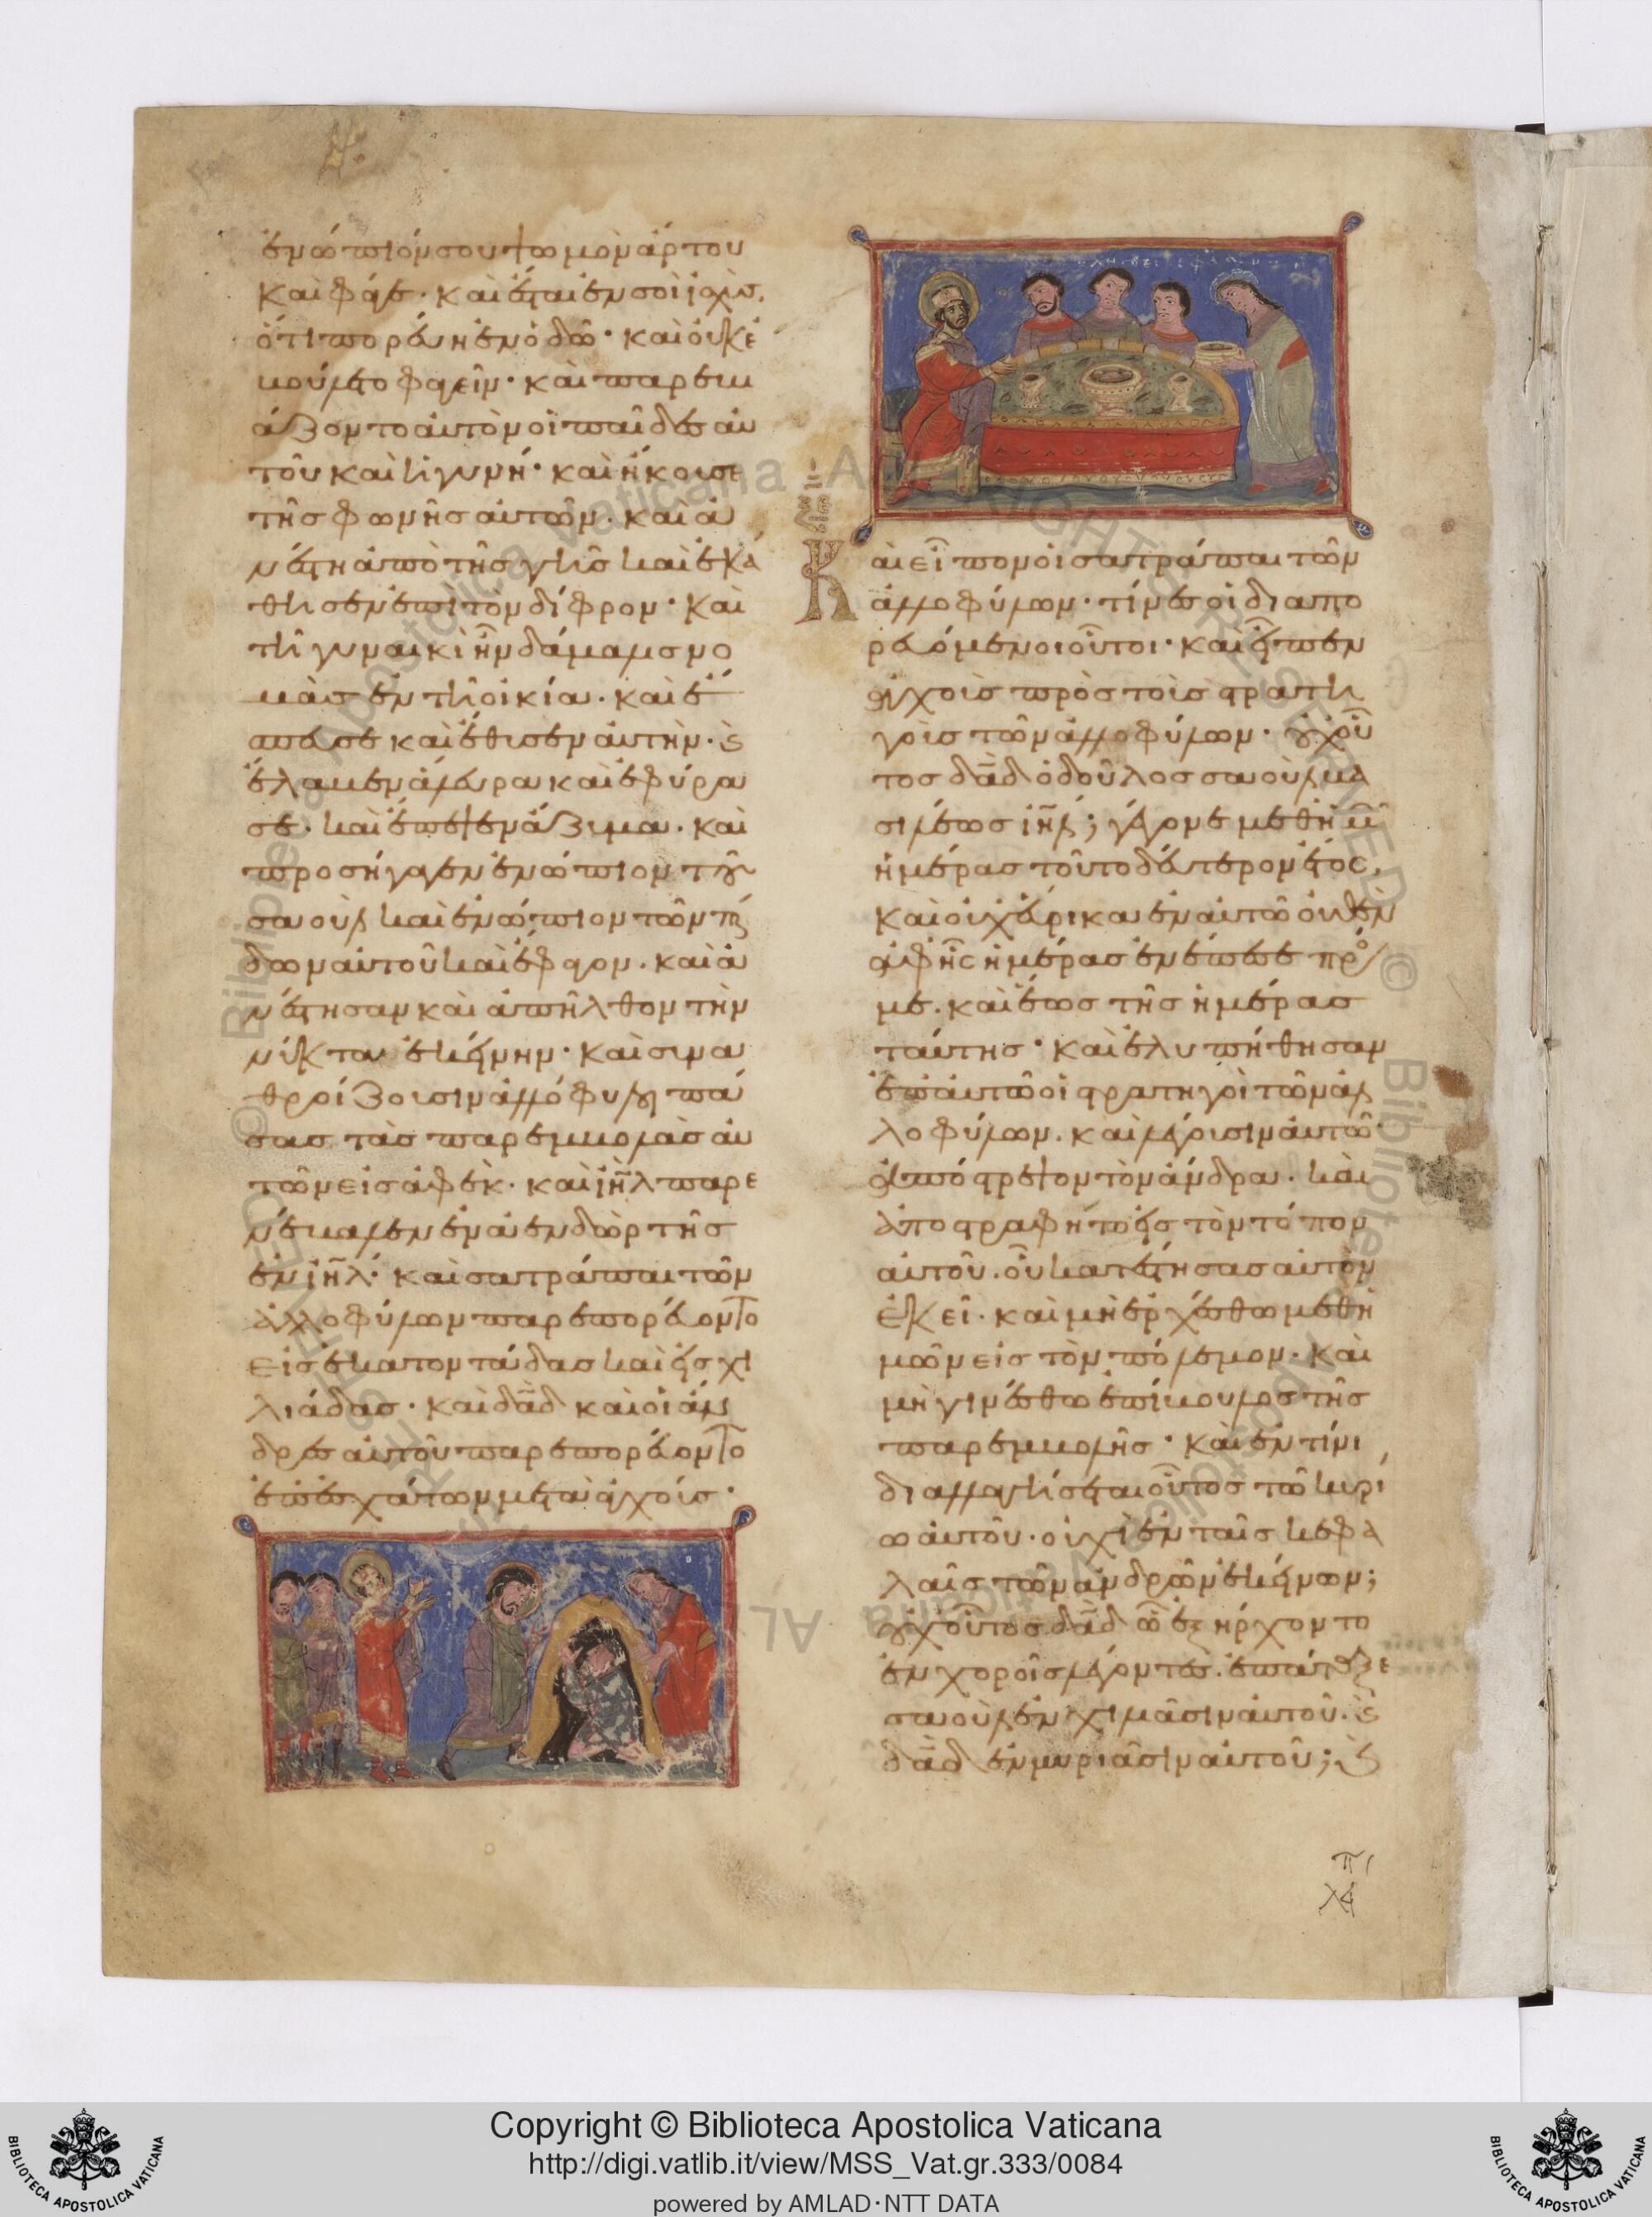 ἐνώπιόν σου ψωμὸν ἄρτου
καὶ φάγε· καὶ ἔσται ἐν σοὶ ἰσχὺς,
ὅτι πορεύη ἐν ὁδῶ· καὶ οὐκ ἐ
βούλετο φαγεῖν· καὶ παρεβι
άζοντο αὐτὸν οἱ παῖδες αὐ
τοῦ καὶ ἡ γυνή· καὶ ἤκουσε
τῆς φωνῆς αὐτῶν. καὶ ἀ
νέστη ἀπὸ τῆς γῆς καὶ ἐκά
θισεν ἐπὶ τὸν δίφρον· καὶ
τῆ γυναικὶ ἦν δάμαλις νο
μὰς ἐν τῆ οἰκία. καὶ ἔ
σπευσε καὶ ἔθυσεν αὐτὴν· ϗ
ἔλαβεν ἄλευρα καὶ ἐφύρα
σε. καὶ ἔπεψεν ἄζυμα. καὶ
προσήγαγεν ἐνώπιον τοῦ
σαοὺλ καὶ ἐνώπιον τῶν παί
δων αὐτοῦ καὶ ἔφαγον. καὶ ἀ
νέστησαν καὶ ἀπῆλθον τὴν
νύκτα ἐκείνην· καὶ συνα
θροίζουσιν ἀλλόφυλοι πά
σας τὰς παρεμβολὰς αὐ
τῶν εἰς ἀφέκ. καὶ ἰηλ παρε
νέβαλεν ἐν ἀενδὼρ τῆς
ἐν ἰηλ· καὶ σατράπαι τῶν
ἀλλοφύλων παρεπορεύοντο
εἰς ἑκατοντάδας καὶ εἰς χι
λιάδας· καὶ δαδ καὶ οἱ ἄν
δρες αὐτοῦ παρεπορεύοντο
ἐπ' ἐσχάτων μετὰ ἀγχούς·
καὶ εἶπον οἱ σατράπαι τῶν
ἀλλοφύλων· τίνες οἱ διαπο
ρευόμενοι οὗτοι· καὶ εἶπεν
ἀγχοὺς πρὸς τοὺς στρατη
γοὺς τῶν ἀλλοφύλων· οὐχ οὗ
τος δαδ ὁ δοῦλος σαοὺλ βα
σιλέως ἰηλ; γέγονε μεθ' ἡμῶν
ἡμέρας τοῦτο δεύτερον ἔτος,
καὶ οὐχ εὕρηκα ἐν αὐτῶ οὐδὲν
ἀφ' ἧς ἡμέρας ἐνέπεσε πρός
με. καὶ ἕως τῆς ἡμέρας
ταύτης· καὶ ἐλυπήθησαν
ἐπ' αὐτῶ οἱ στρατηγοὶ τῶν ἀλ
λοφύλων. καὶ λέγουσιν αὐτῶ·
ἀπόστρεψον τὸν ἄνδρα. καὶ
ἀποστραφήτω εἰς τὸν τόπον
αὐτοῦ. οὗ κατέστησας αὐτὸν
ἐκεῖ. καὶ μὴ ἐρχέσθω μεθ' ἡ
μῶν εἰς τὸν πόλεμον. καὶ
μὴ γινέσθω ἐπίβουλος τῆς
παρεμβολῆς· καὶ ἐν τίνι
διαλλαγήσεται οὗτος τῶ κυρί
ω αὐτοῦ. οὐχὶ ἐν ταῖς κεφα
λαῖς τῶν ἀνδρῶν ἐκείνων;
οὐχ οὗτος δαδ ᾧ ἐξήρχοντο
ἐν χοροῖς λέγοντες. ἐπάταξε
σαοὺλ ἐν χιλιᾶσιν αὐτοῦ. ϗ
δαδ ἐν μυριᾶσιν αὐτοῦ; ϗ
Copyright © Biblioteca Apostolica Vaticana
http://digi.vatlib.it/view/MSS_Vat.gr.333/0084
powered by AMLAD·NTT DATA
BIBLIOTECA APOSTOLICA VATICANA
BIBLIOTECA APOSTOLICA VATICANA